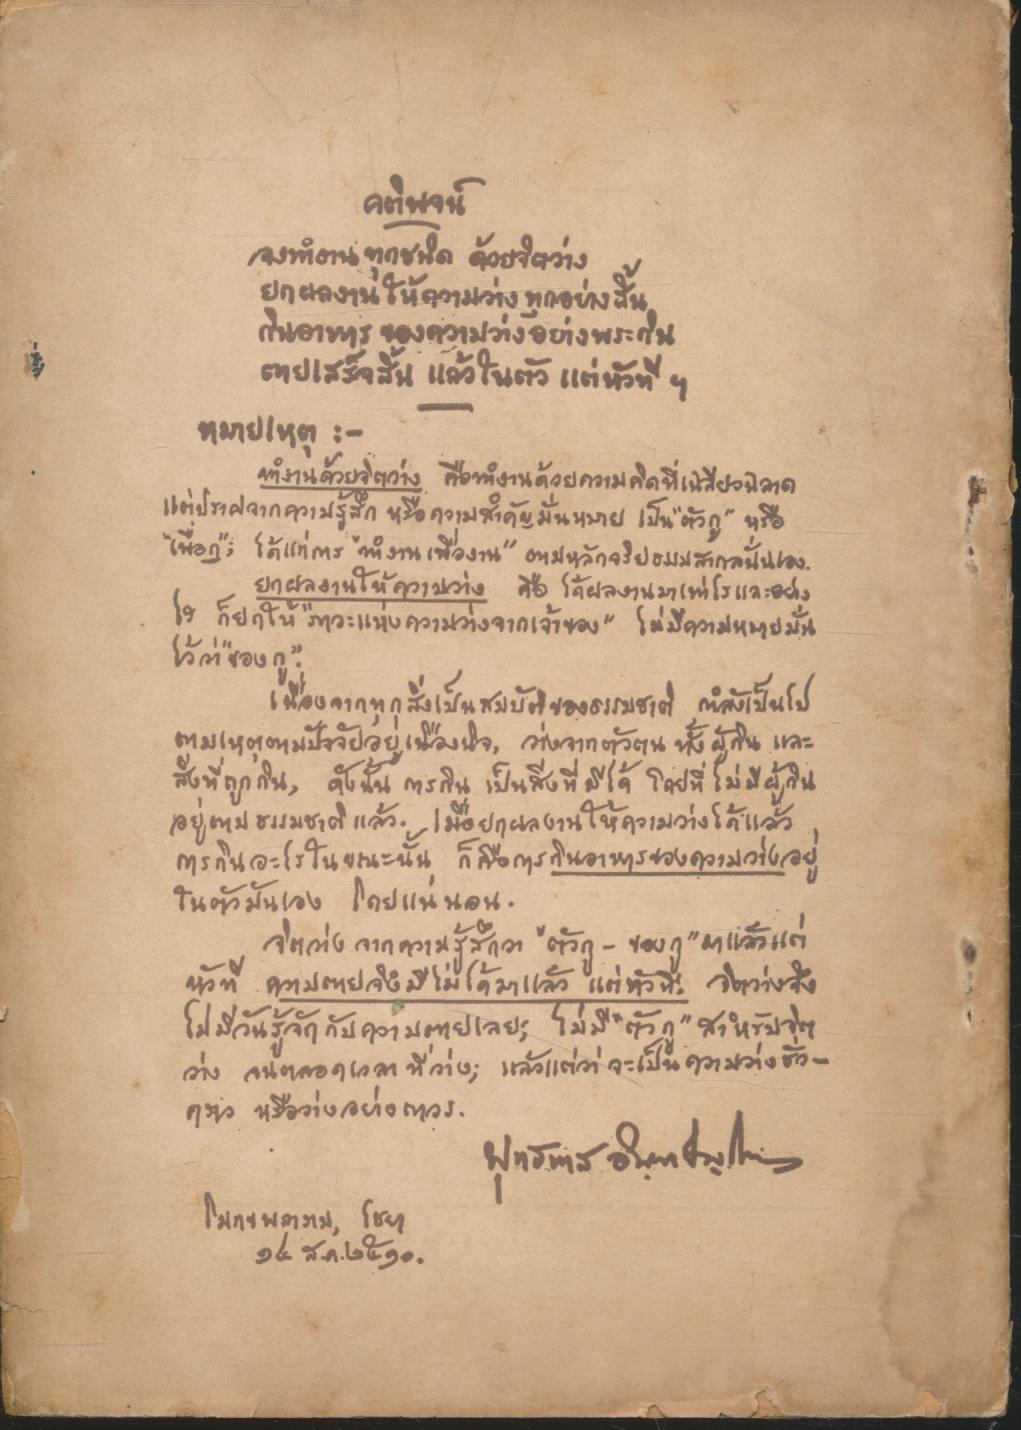 คติพจน์
จงทำงาน ทุกชนิด ด้วยจิตว่าง
ยกผลงาน ให้ความว่าง ทุกอย่างสิ้น
กินอาหาร ของความว่าง อย่างพระกิน
ตายเสร็จสิ้น แล้วในตัว แต่หัวที ฯ
หมายเหตุ :-
ทำงานด้วยจิตว่าง คือทำงานด้วยความคิดที่เฉลียวฉลาด
แต่ปราศจากความรู้สึก หรือความสำคัญมั่นหมาย เป็น "ตัวกู" หรือ
"เพื่อกู"; ได้แก่การ "ทำงานเพื่องาน" ตามหลักจริยธรรมสากลนั่นเอง.
ยกผลงานให้ความว่าง คือ ได้ผลงานมาเท่าไรและอย่าง
ไร ก็ยกให้ "ภาวะแห่งความว่างจากเจ้าของ" ไม่มีความหมายมั่น
ไว้ว่า "ของกู".
เนื่องจากทุกสิ่งเป็นสมบัติของธรรมชาติ กำลังเป็นไป
ตามเหตุตามปัจจัยอยู่เนืองนิจ, ว่างจากตัวตน ทั้งผู้กิน และ
สิ่งที่ถูกกิน, ดังนั้น การกิน เป็นสิ่งที่มีได้ โดยที่ไม่มีผู้กิน
อยู่ตามธรรมชาติแล้ว. เมื่อยกผลงานให้ความว่างได้แล้ว
การกินอะไรในขณะนั้น ก็คือการกินอาหารของความว่างอยู่
ในตัวมันเอง โดยแน่นอน.
จิตว่าง จากความรู้สึกว่า "ตัวกู - ของกู" มาแล้วแต่
หัวที ความตายจึงมีไม่ได้มาแล้ว แต่หัวที: จิตว่างจึง
ไม่มีวันรู้จักกับความตายเลย; ไม่มี "ตัวกู" สำหรับจิต
ว่าง จนตลอดเวลาที่ว่าง; แล้วแต่ว่าจะเป็นความว่างชั่ว-
คราว หรือว่างอย่างถาวร.
พุทธทาส อินฺทปญฺโญ
โมกขพลาราม, ไชยา
๑๔ ส.ค. ๒๕๑๐.